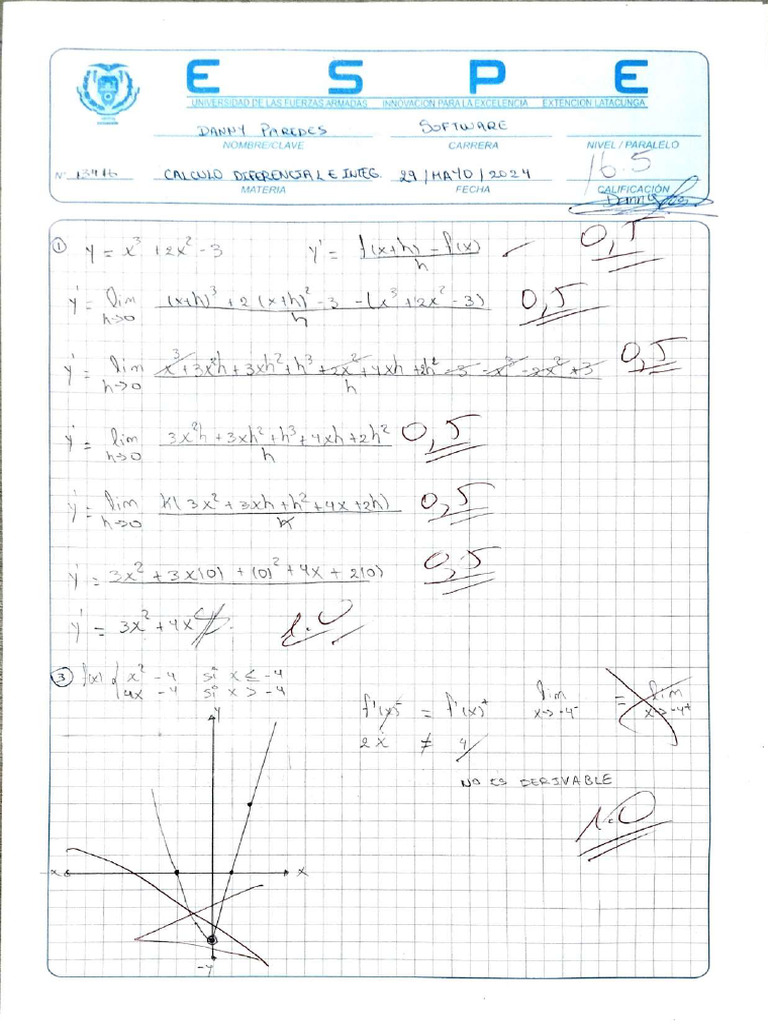 E S P E
UNIVERSIDAD DE LAS FUERZAS ARMADAS INNOVACION PARA LA EXCELENCIA EXTENCION LATACUNGA
DANNY PAREDES SOFTWARE
NOMBRE/CLAVE CARRERA NIVEL / PARALELO
16.5
Nº 13416 CALCULO DIFERENCIAL E INTEG. 29/MAYO/2024
MATERIA FECHA CALIFICACIÓN
Danny
① y = x³ + 2x² - 3 y' = f(x+h) - f(x) / h 0,5
y' = lim h→0 (x+h)³ + 2(x+h)² - 3 - (x³ + 2x² - 3) / h 0,5
y' = lim h→0 x³ + 3x²h + 3xh² + h³ + 2x² + 4xh + 2h² - 3 - x³ - 2x² + 3 / h 0,5
y' = lim h→0 3x²h + 3xh² + h³ + 4xh + 2h² / h 0,5
y' = lim h→0 h(3x² + 3xh + h² + 4x + 2h) / h 0,5
y' = 3x² + 3x(0) + (0)² + 4x + 2(0) 0,5
y' = 3x² + 4x 1.0
③ f(x) { x² - 4 si x ≤ -4
4x - 4 si x > -4
f'(x)⁻ = f'(x)⁺ lim x→-4⁻ = lim x→-4⁺
2x ≠ 4
NO ES DERIVABLE
1.0
y
-x x
-y